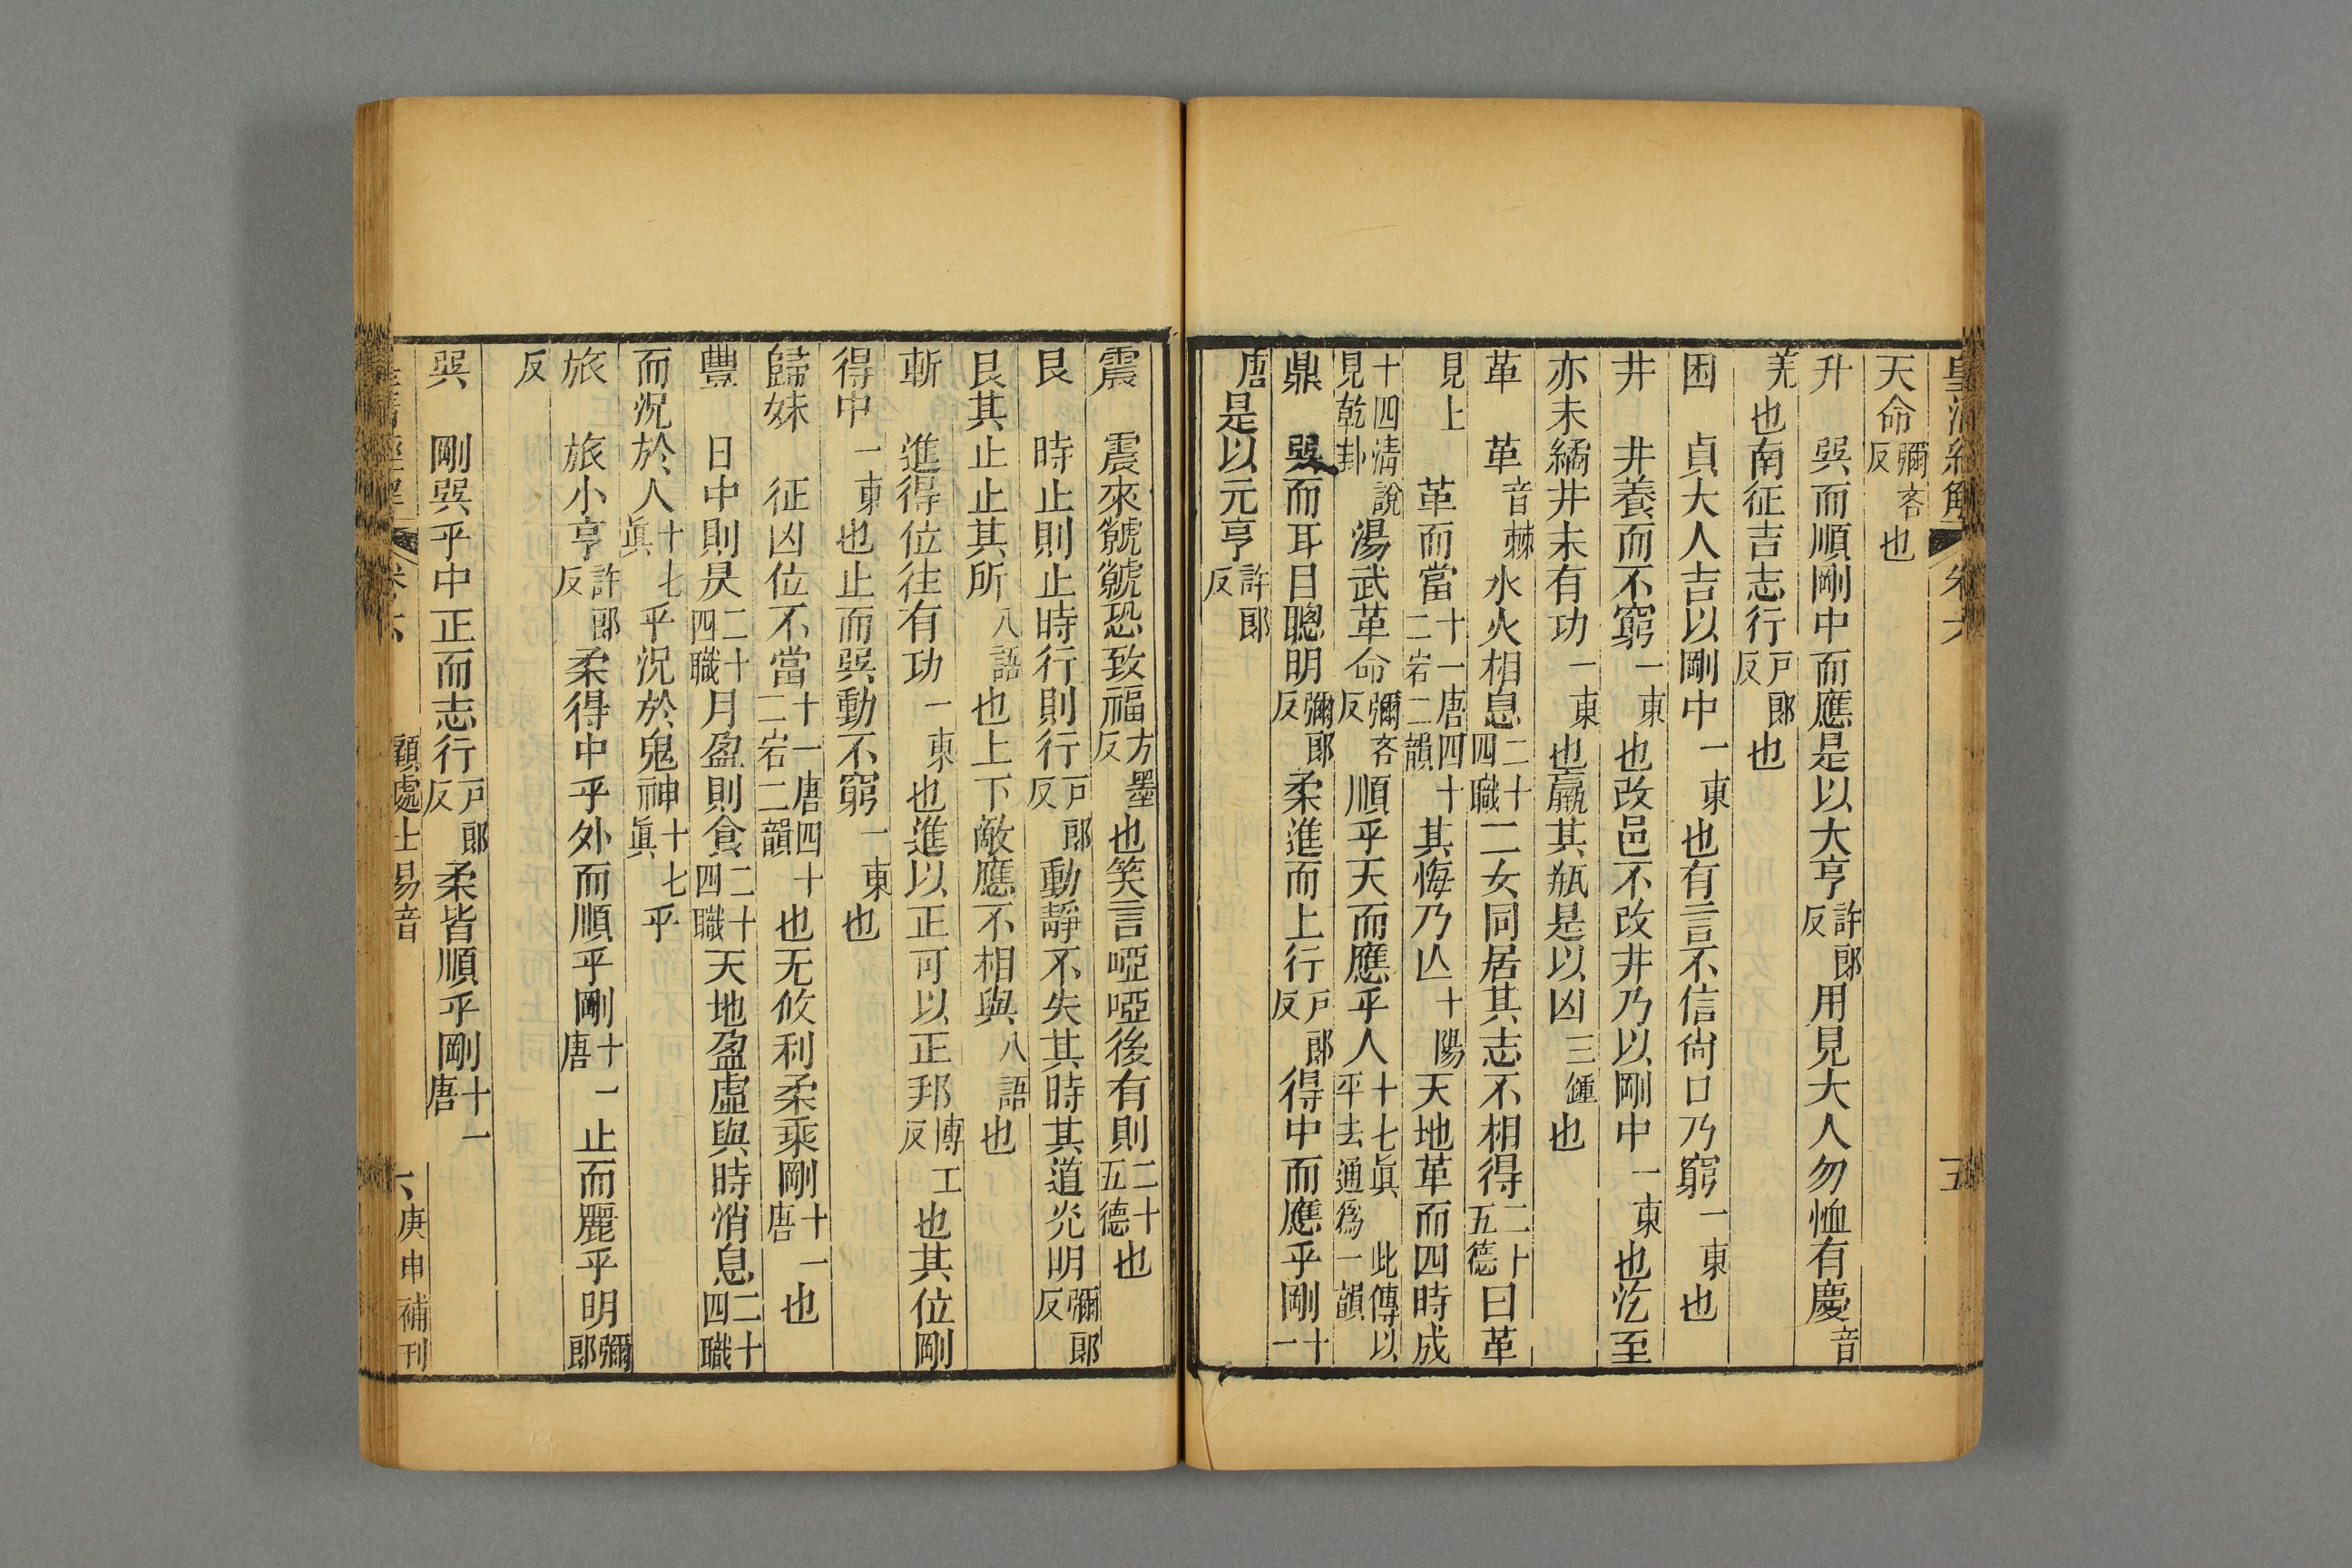 皇清經解 卷六 五
天命彌吝反也
升 巽而順剛中而應是以大亨許郎反用見大人勿恤有慶音
羌也南征吉志行戸郎反也
困 貞大人吉以剛中一東也有言不信尙口乃窮一東也
井 井養而不窮一東也改邑不改井乃以剛中一東也汔至
亦未繘井未有功一東也羸其瓶是以凶三鍾也
革 革音棘水火相息二十四職二女同居其志不相得二十五德曰革
見上 革而當十一唐四十二宕二韻其悔乃亾十陽天地革而四時成
十四淸說見乾卦湯武革命彌吝反順乎天而應乎人十七眞此傳以平去通爲一韻
鼎 巽而耳目聰明彌郎反柔進而上行戸郎反得中而應乎剛十一
唐是以元亨許郎反
震 震來虩虩恐致福方墨反也笑言啞啞後有則二十五德也
艮 時止則止時行則行戸郎反動靜不失其時其道光明彌郎反
艮其止止其所八語也上下敵應不相與八語也
漸 進得位往有功一東也進以正可以正邦博工反也其位剛
得中一東也止而巽動不窮一東也
歸妹 征凶位不當十一唐四十二宕二韻也无攸利柔乘剛十一唐也
豐 日中則昃二十四職月盈則食二十四職天地盈虛與時消息二十四職
而況於人十七眞乎況於鬼神十七眞乎
旅 旅小亨許郎反柔得中乎外而順乎剛十一唐止而麗乎明彌郎
反
巽 剛巽乎中正而志行戸郎反柔皆順乎剛十一唐
皇清經解 卷六 顧處士易音 六 庚申補刊